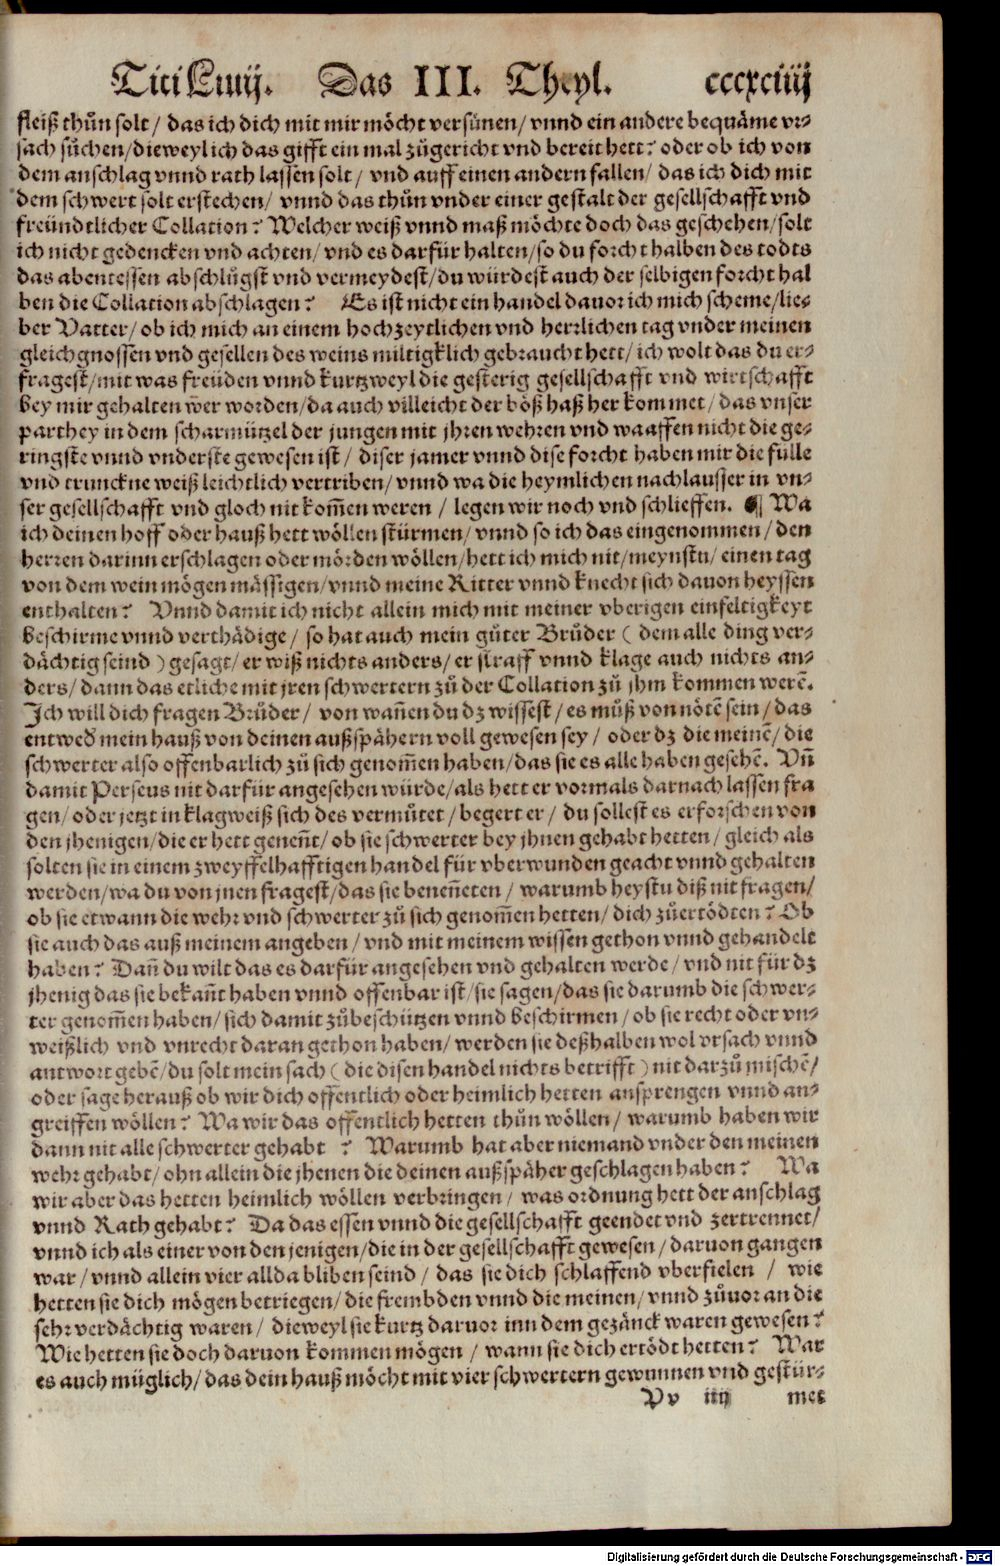 Titi Liuij. Das III. Theyl. cccxciiij
fleiß thůn solt / das ich dich mit mir möcht versünen / vnnd ein andere bequäme vr-
sach sůchen / dieweyl ich das gifft ein mal zůgericht vnd bereit hett? oder ob ich von
dem anschlag vnnd rath lassen solt / vnd auff einen andern fallen / das ich dich mit
dem schwert solt erstechen / vnnd das thůn vnder einer gestalt der gesellschafft vnd
freündtlicher Collation? Welcher weiß vnnd maß möchte doch das geschehen / solt
ich nicht gedencken vnd achten / vnd es darfür halten / so du forcht halben des todts
das abentessen abschlůgst vnd vermeydest / du würdest auch der selbigen forcht hal
ben die Collation abschlagen? Es ist nicht ein handel dauor ich mich scheme / lie-
ber Vatter / ob ich mich an einem hochzeytlichen vnd herrlichen tag vnder meinen
gleichgnossen vnd gesellen des weins miltigklich gebraucht hett / ich wolt das du er-
fragest / mit was freüden vnnd kurtzweyl die gesterig gesellschafft vnd wirtschafft
bey mir gehalten wer worden / da auch villeicht der böß haß her kommet / das vnser
parthey in dem scharmützel der jungen mit jhren wehren vnd waaffen nicht die ge-
ringste vnnd vnderste gewesen ist / diser jamer vnnd dise forcht haben mir die fülle
vnd trunckne weiß leichtlich vertriben / vnnd wa die heymlichen nachlausser in vn-
ser gesellschafft vnd gloch nit kom̃en weren / legen wir noch vnd schlieffen. ¶ Wa
ich deinen hoff oder hauß hett wöllen stürmen / vnnd so ich das eingenommen / den
herren darinn erschlagen oder mörden wöllen / hett ich mich nit / meynstu / einen tag
von dem wein mögen mässigen / vnnd meine Ritter vnnd knecht sich dauon heyssen
enthalten? Vnnd damit ich nicht allein mich mit meiner vberigen einfeltigkeyt
beschirme vnnd verthädige / so hat auch mein gůter Brůder ( dem alle ding ver-
dächtig seind ) gesagt / er wiß nichts anders / er straff vnnd klage auch nichts an-
ders / dann das etliche mit jren schwertern zů der Collation zů jhm kommen werẽ.
Ich will dich fragen Brůder / von wañen du dz wissest / es můß von nötẽ sein / das
entwed̾ mein hauß von deinen außspähern voll gewesen sey / oder dz die meinẽ / die
schwerter also offenbarlich zů sich genom̃en haben / das sie es alle haben gesehẽ. Vñ
damit Perseus nit darfür angesehen würde / als hett er vormals darnach lassen fra
gen / oder jetzt in klagweiß sich des vermůtet / begert er / du sollest es erforschen von
den jhenigen / die er hett geneñt / ob sie schwerter bey jhnen gehabt hetten / gleich als
solten sie in einem zweyffelhafftigen handel für vberwunden geacht vnnd gehalten
werden / wa du von jnen fragest / das sie beneñeten / warumb heystu diß nit fragen /
ob sie etwann die wehr vnd schwerter zů sich genom̃en hetten / dich zůertödten? Ob
sie auch das auß meinem angeben / vnd mit meinem wissen gethon vnnd gehandelt
haben? Dañ du wilt das es darfür angesehen vnd gehalten werde / vnd nit für dz
jhenig das sie bekañt haben vnnd offenbar ist / sie sagen / das sie darumb die schwer-
ter genom̃en haben / sich damit zůbeschützen vnnd beschirmen / ob sie recht oder vn-
weißlich vnd vnrecht daran gethon haben / werden sie deßhalben wol vrsach vnnd
antwort gebẽ / du solt mein sach ( die disen handel nichts betrifft ) nit darzů mischẽ /
oder sage herauß ob wir dich offentlich oder heimlich hetten ansprengen vnnd an-
greiffen wöllen? Wa wir das offentlich hetten thůn wöllen / warumb haben wir
dann nit alle schwerter gehabt ? Warumb hat aber niemand vnder den meinen
wehr gehabt / ohn allein die jhenen die deinen außspäher geschlagen haben? Wa
wir aber das hetten heimlich wöllen verbringen / was ordnung hett der anschlag
vnnd Rath gehabt? Da das essen vnnd die gesellschafft geendet vnd zertrennet /
vnnd ich als einer von den jenigen / die in der gesellschafft gewesen / daruon gangen
war / vnnd allein vier allda bliben seind / das sie dich schlaffend vberfielen / wie
hetten sie dich mögen betriegen / die frembden vnnd die meinen / vnnd zůuor an die
sehr verdächtig waren / dieweyl sie kurtz daruor inn dem gezänck waren gewesen?
Wie hetten sie doch daruon kommen mögen / wann sie dich ertödt hetten? War
es auch müglich / das dein hauß möcht mit vier schwertern gewunnen vnd gestür-
Pv iiij met
Digitalisierung gefördert durch die Deutsche Forschungsgemeinschaft - DFG